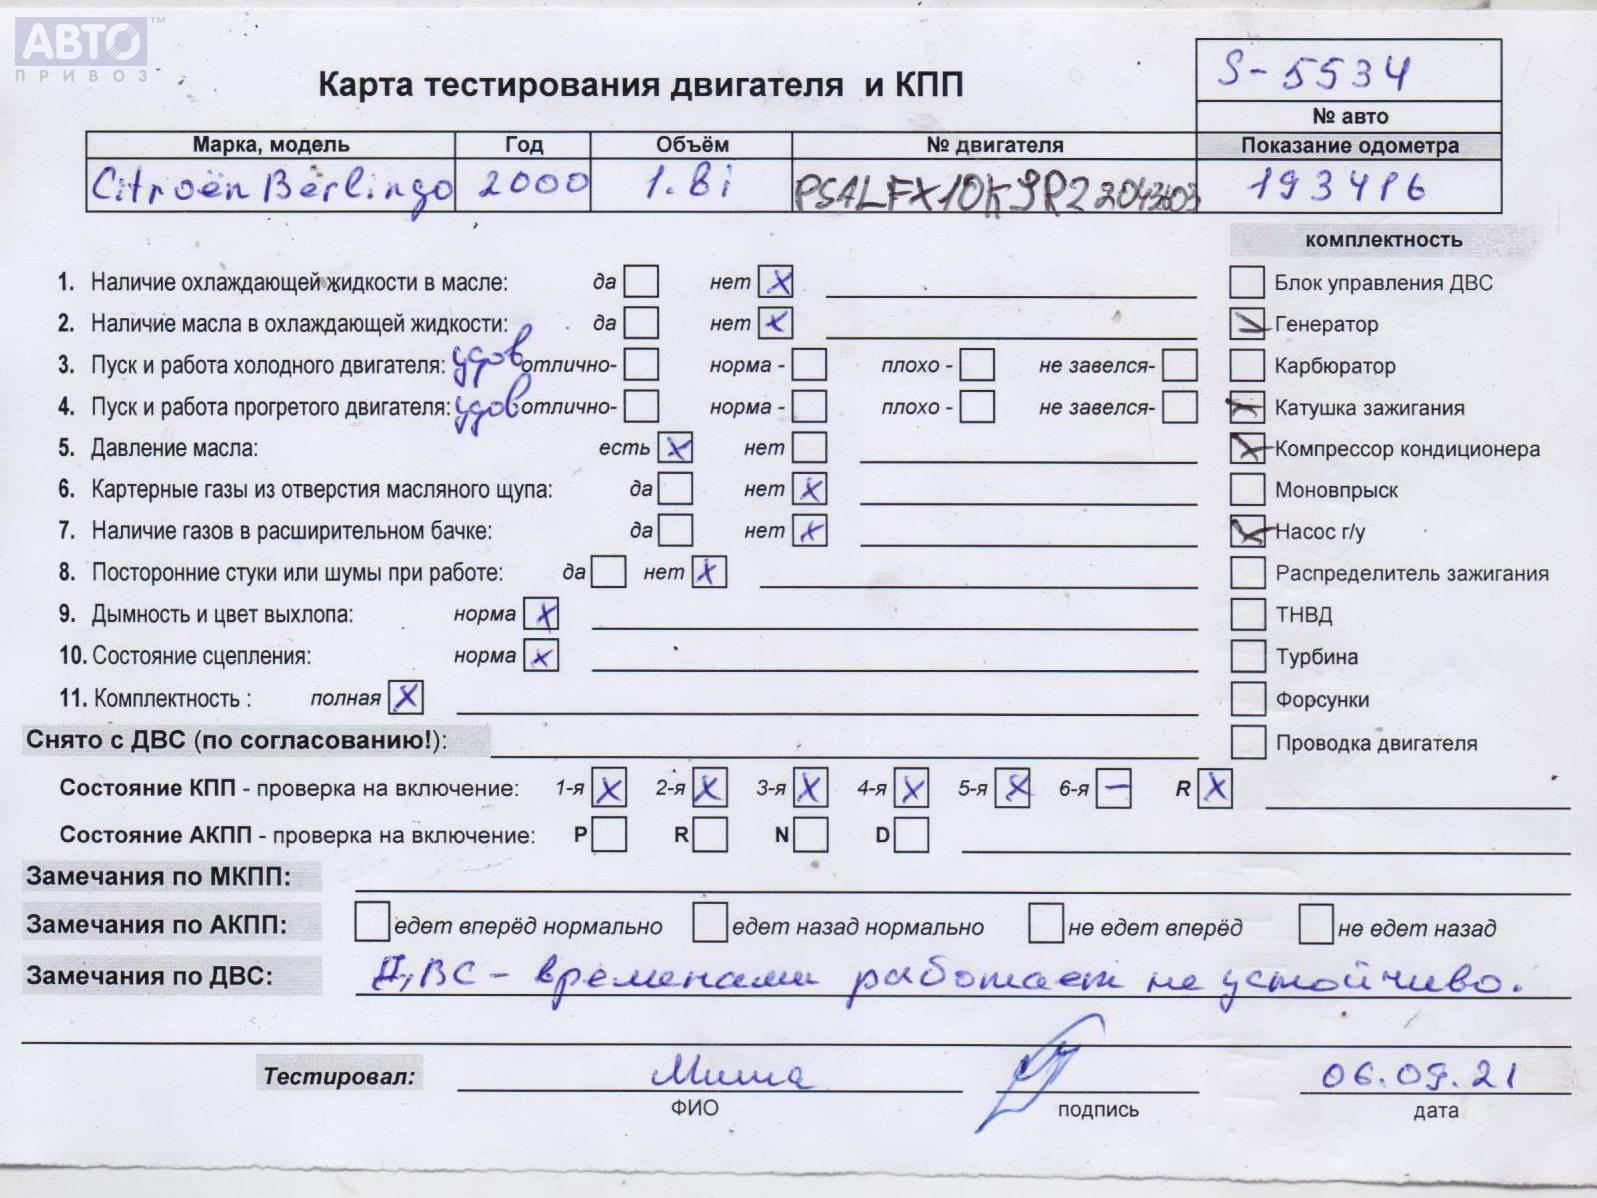 АВТО™
ПРИВОЗ
S-5534
Карта тестирования двигателя и КПП
№ авто
Марка, модель Год Объём № двигателя Показание одометра
Citroën Berlingo 2000 1.8i
комплектность
1. Наличие охлаждающей жидкости в масле: да нет X Блок управления ДВС
2. Наличие масла в охлаждающей жидкости: да нет X Генератор
3. Пуск и работа холодного двигателя: удов отлично- норма - плохо - не завелся- Карбюратор
4. Пуск и работа прогретого двигателя: удов отлично- норма - плохо - не завелся- X Катушка зажигания
5. Давление масла: есть X нет X Компрессор кондиционера
6. Картерные газы из отверстия масляного щупа: да нет X Моновпрыск
7. Наличие газов в расширительном бачке: да нет X X Насос г/у
8. Посторонние стуки или шумы при работе: да нет X Распределитель зажигания
9. Дымность и цвет выхлопа: норма X ТНВД
10. Состояние сцепления: норма X Турбина
11. Комплектность : полная X Форсунки
Снято с ДВС (по согласованию!): Проводка двигателя
Состояние КПП - проверка на включение: 1-я X 2-я X 3-я X 4-я X 5-я X 6-я – R X
Состояние АКПП - проверка на включение: P R N D
Замечания по МКПП:
Замечания по АКПП: едет вперёд нормально едет назад нормально не едет вперёд не едет назад
Замечания по ДВС: ДВС - временами работает не устойчиво.
Тестировал: Миша 06.09.21
ФИО подпись дата